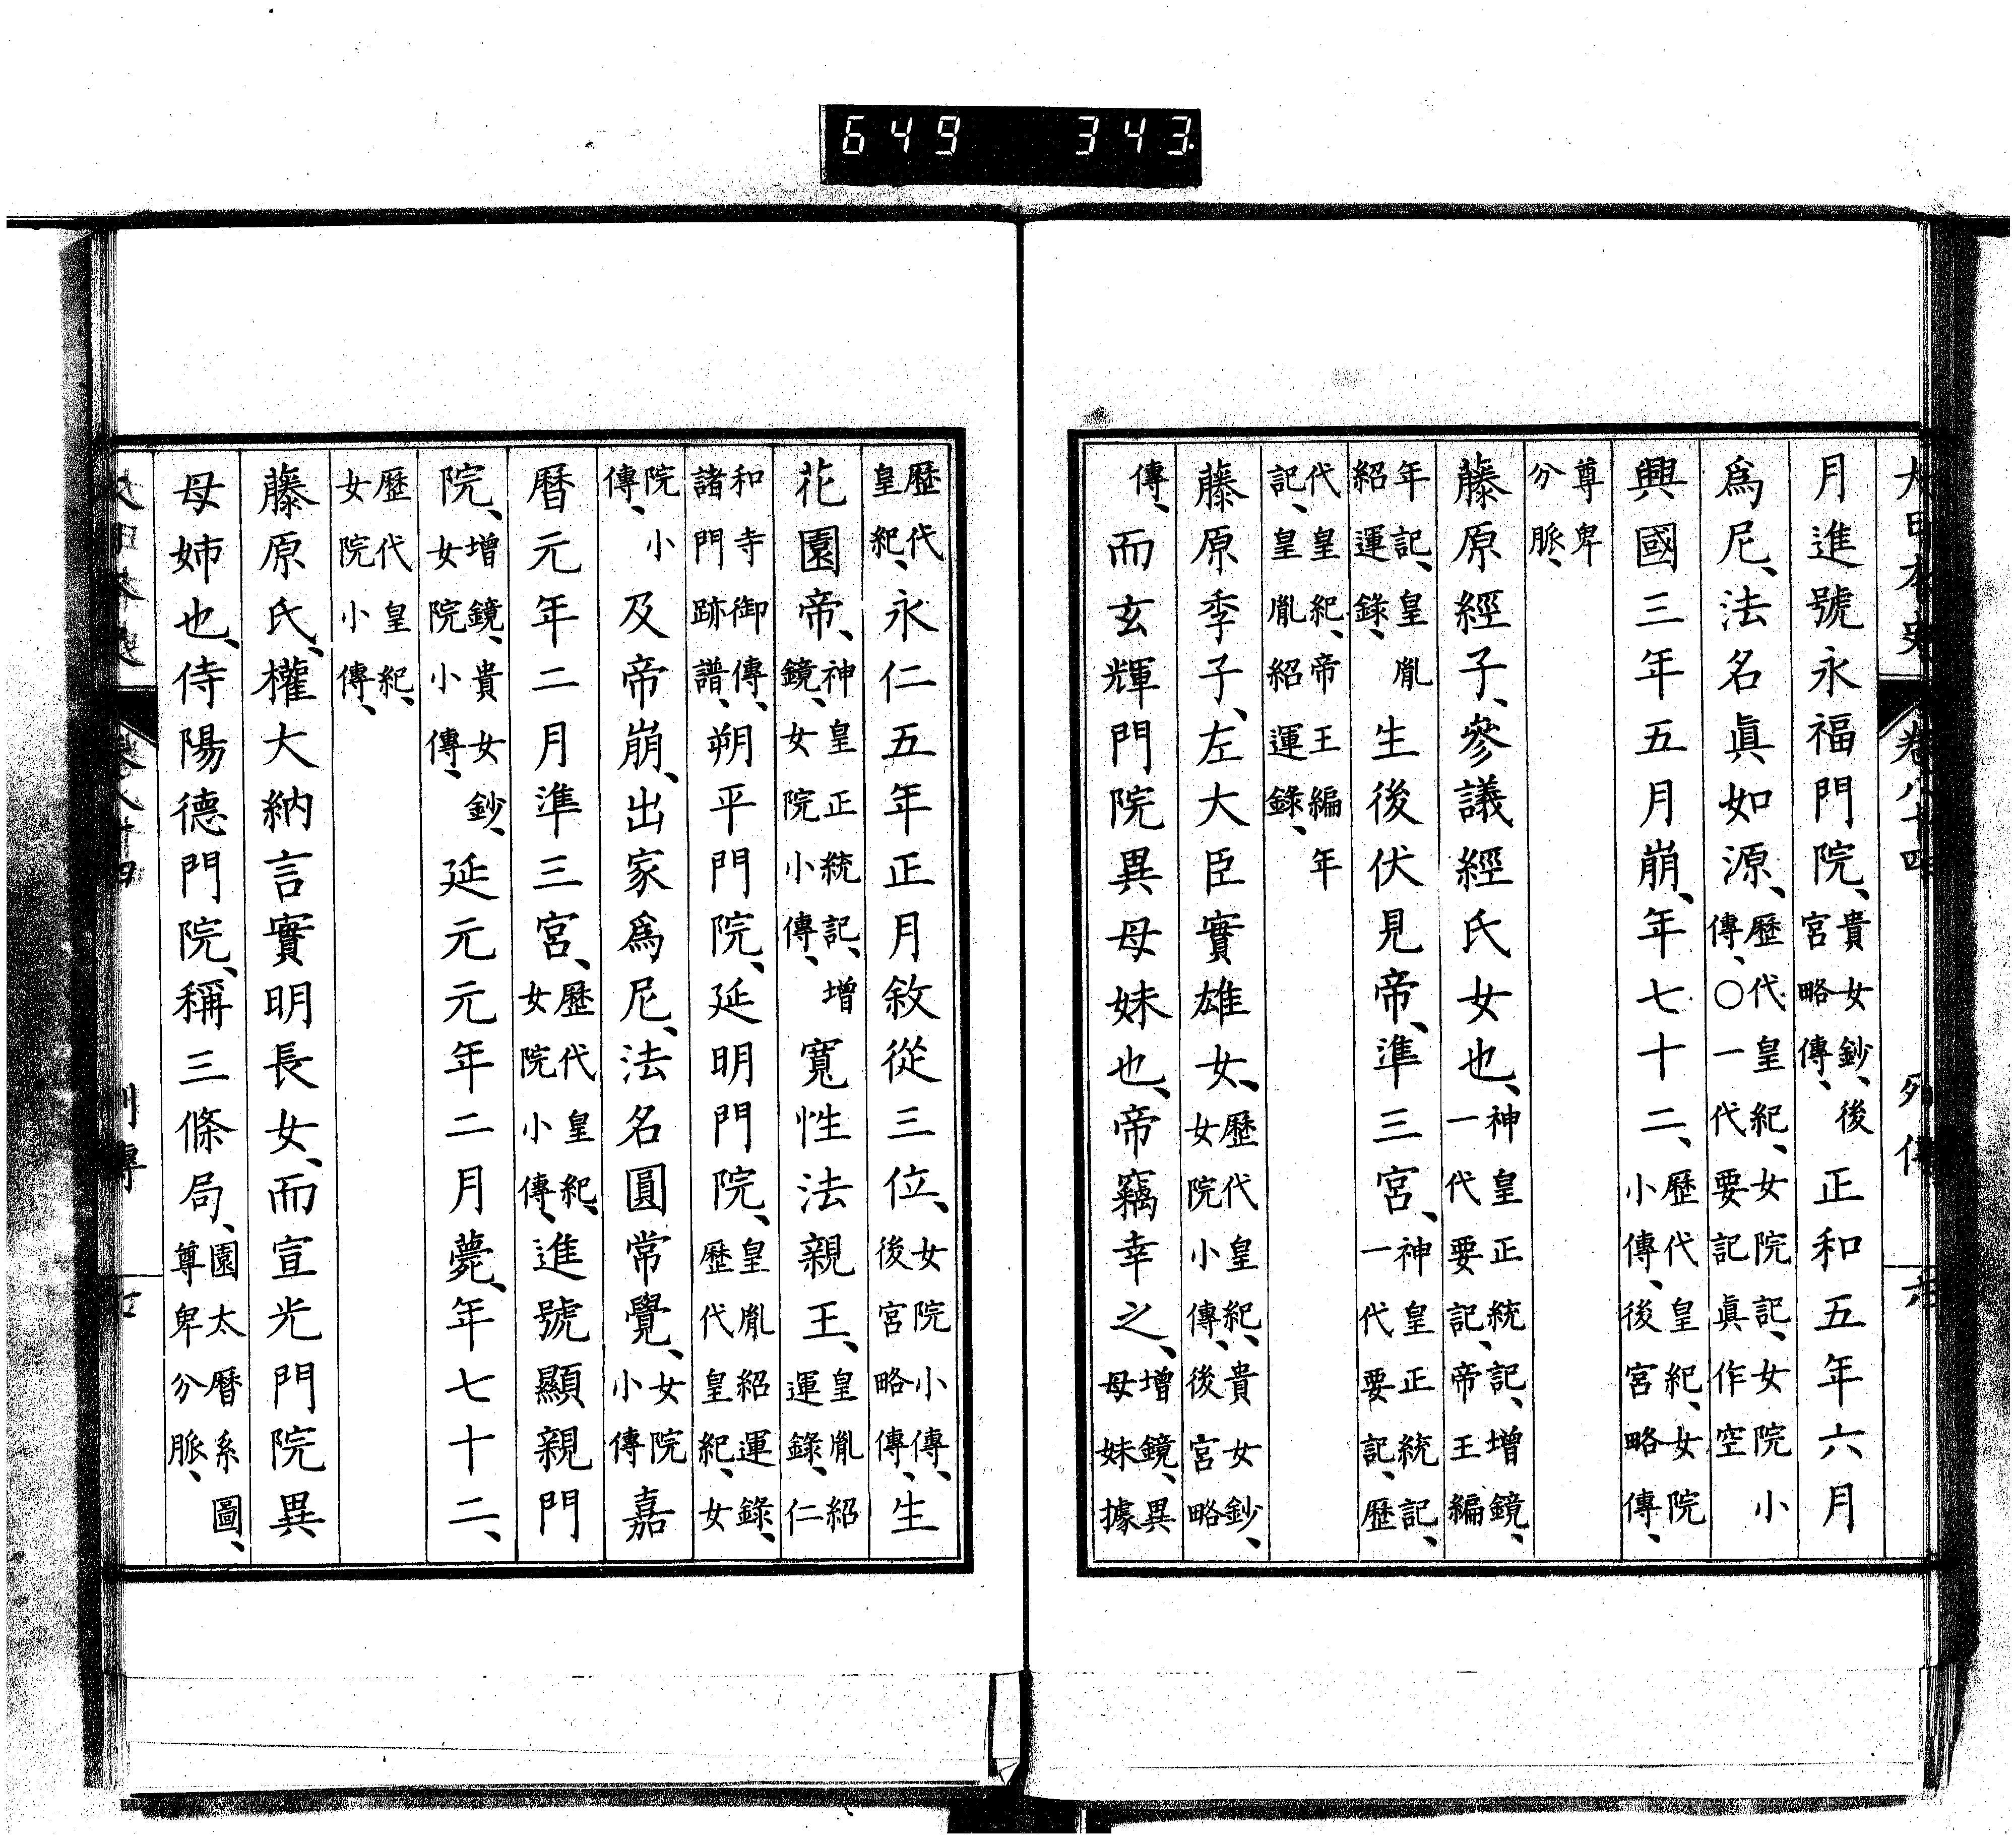 649 343
大日本史 卷八十四 列傳 六
月進號永福門院、貴女鈔、後宮略傳、正和五年六月
爲尼、法名眞如源、歷代皇紀、女院記、女院小傳、〇一代要記眞作空
興國三年五月崩、年七十二、歷代皇紀、女院小傳、後宮略傳、
尊卑分脈、
藤原經子、參議經氏女也、神皇正統記、增鏡、一代要記、帝王編
年記、皇胤紹運錄、生後伏見帝、準三宮、神皇正統記、一代要記、歷
代皇紀、帝王編年記、皇胤紹運錄、
藤原季子、左大臣實雄女、歷代皇紀、貴女鈔、女院小傳、後宮略
傳、而玄輝門院異母妹也、帝竊幸之、增鏡、異母妹據
歷代皇紀、永仁五年正月敘從三位、女院小傳、後宮略傳、生
花園帝、神皇正統記、增鏡、女院小傳、寬性法親王、皇胤紹運錄、仁
和寺御傳、諸門跡譜、朔平門院、延明門院、皇胤紹運錄、歷代皇紀、女
院小傳、及帝崩、出家爲尼、法名圓常覺、女院小傳嘉
曆元年二月準三宮、歷代皇紀、女院小傳、進號顯親門
院、增鏡、貴女鈔、女院小傳、延元元年二月薨、年七十二、
歷代皇紀、女院小傳、
藤原氏、權大納言實明長女、而宣光門院異
母姉也、侍陽德門院、稱三條局、園太曆系圖、尊卑分脈、